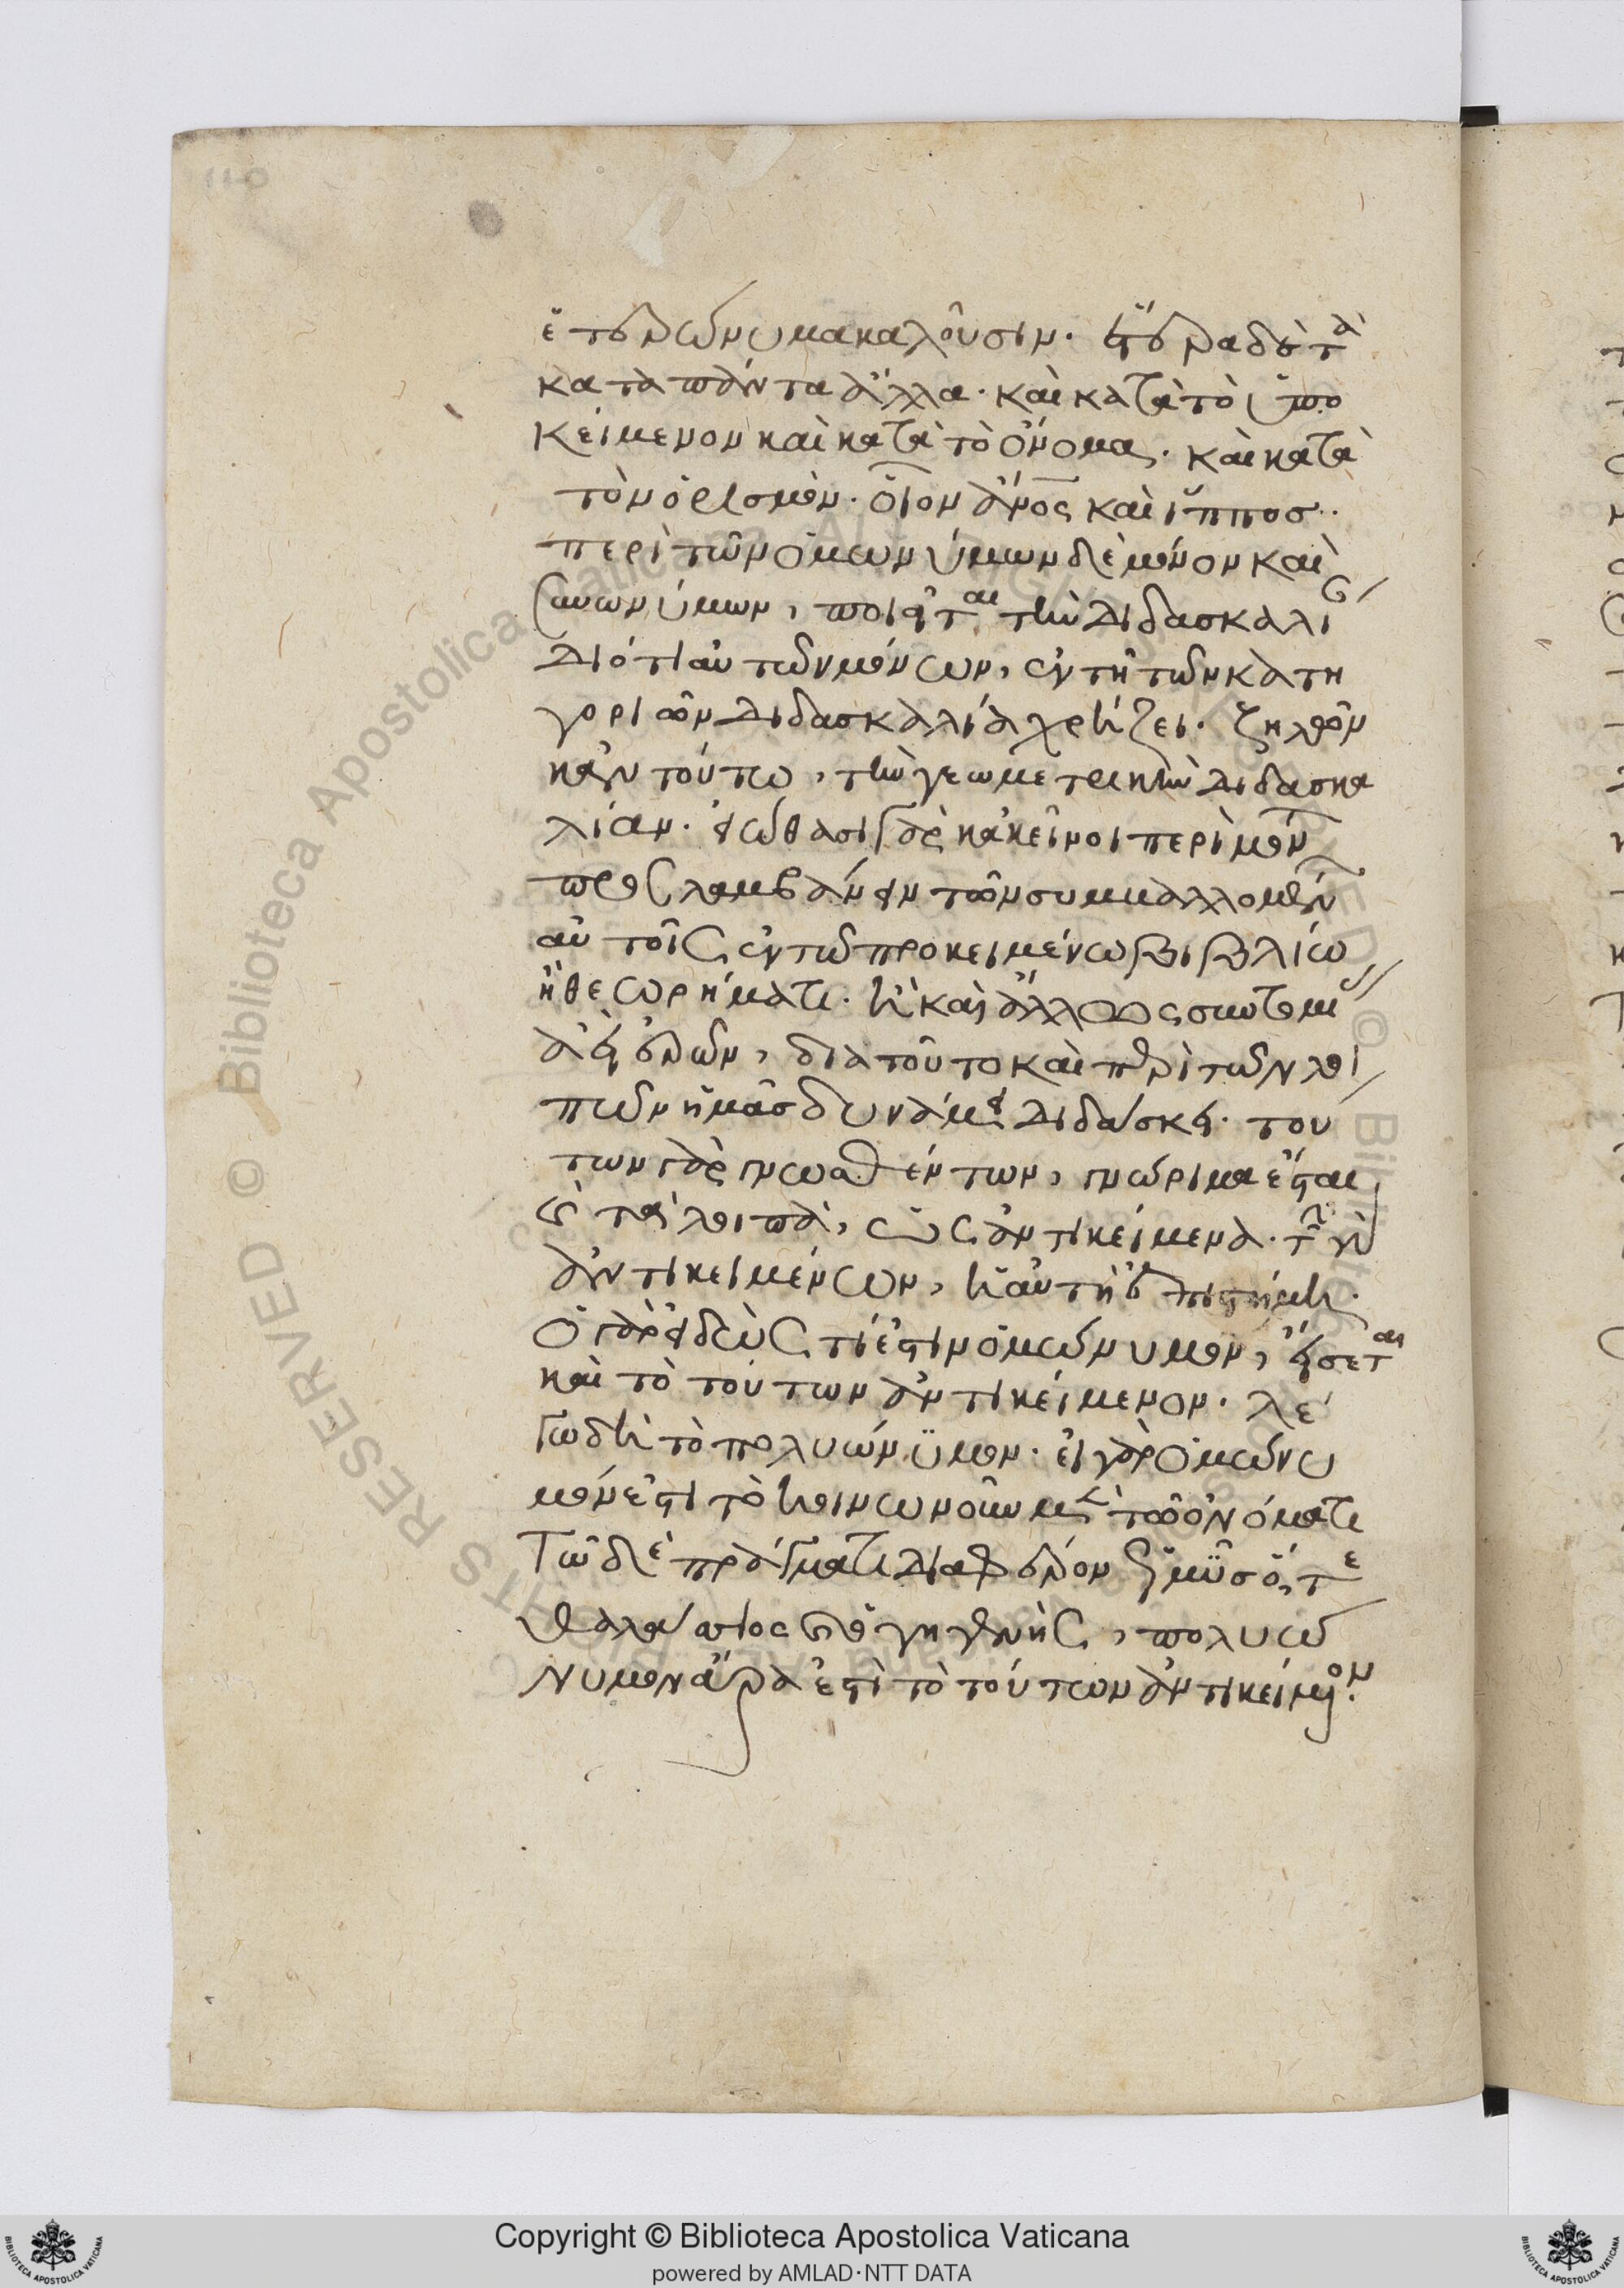 ἑτερώνυμα καλοῦσιν. ἕτερα δὲ τὰ
κατὰ πάντα ἄλλα. καὶ κατὰ τὸ ὑπο
κείμενον καὶ κατὰ τὸ ὄνομα. καὶ κατὰ
τὸν ὁρισμόν. οἷον ἄνος καὶ ἵππος..
περὶ τῶν ὁμωνύμων δὲ μόνον καὶ
συνωνύμων, ποιεῖται τὴν διδασκαλί
διότι αὐτῶν μόνων, ἐν τῆ τῶν κατη
γοριῶν διδασκαλία χρήζει. ζηλῶν
κἀν τούτω, τὴν γεωμετρικὴν διδασκα
λίαν. εἰώθασι γὰρ κἀκεῖνοι περὶ μόνων
προσλαμβάνειν τῶν συμβαλλομένων
αὐτοῖς ἐν τῶ προκειμένω βιβλίω
ἢ θεωρήματι. ἢ καὶ ἄλλως συντομί
διὰ τοῦτο καὶ περὶ τῶν λοι
πῶν ἡμᾶς δυνάμει διδάσκει. τού
των γὰρ γνωσθέντων, γνώριμα ἔσται
καὶ τὰ λοιπὰ, ὡς ἀντικείμενα. τῶν γὰρ
ἀντικειμένων, ἡ αὐτὴ ἐπιστήμη.
ὁ γὰρ εἰδὼς τί ἐστιν ὁμώνυμον, εἴσεται
καὶ τὸ τούτων ἀντικείμενον. λέ
γω δὴ τὸ πολυώνυμον. εἰ γὰρ ὁμώνυ
μόν ἐστι τὸ κοινωνοῦν μὲν τῶ ὀνόματι
τῶ δὲ πράγματι διαφέρον ὅ τε
θαλάττιος καὶ ὁ γηγενὴς, πολυώ
νυμον ἄρα ἐστὶ τὸ τούτων ἀντικείμενον.
Copyright © Biblioteca Apostolica Vaticana
powered by AMLAD·NTT DATA